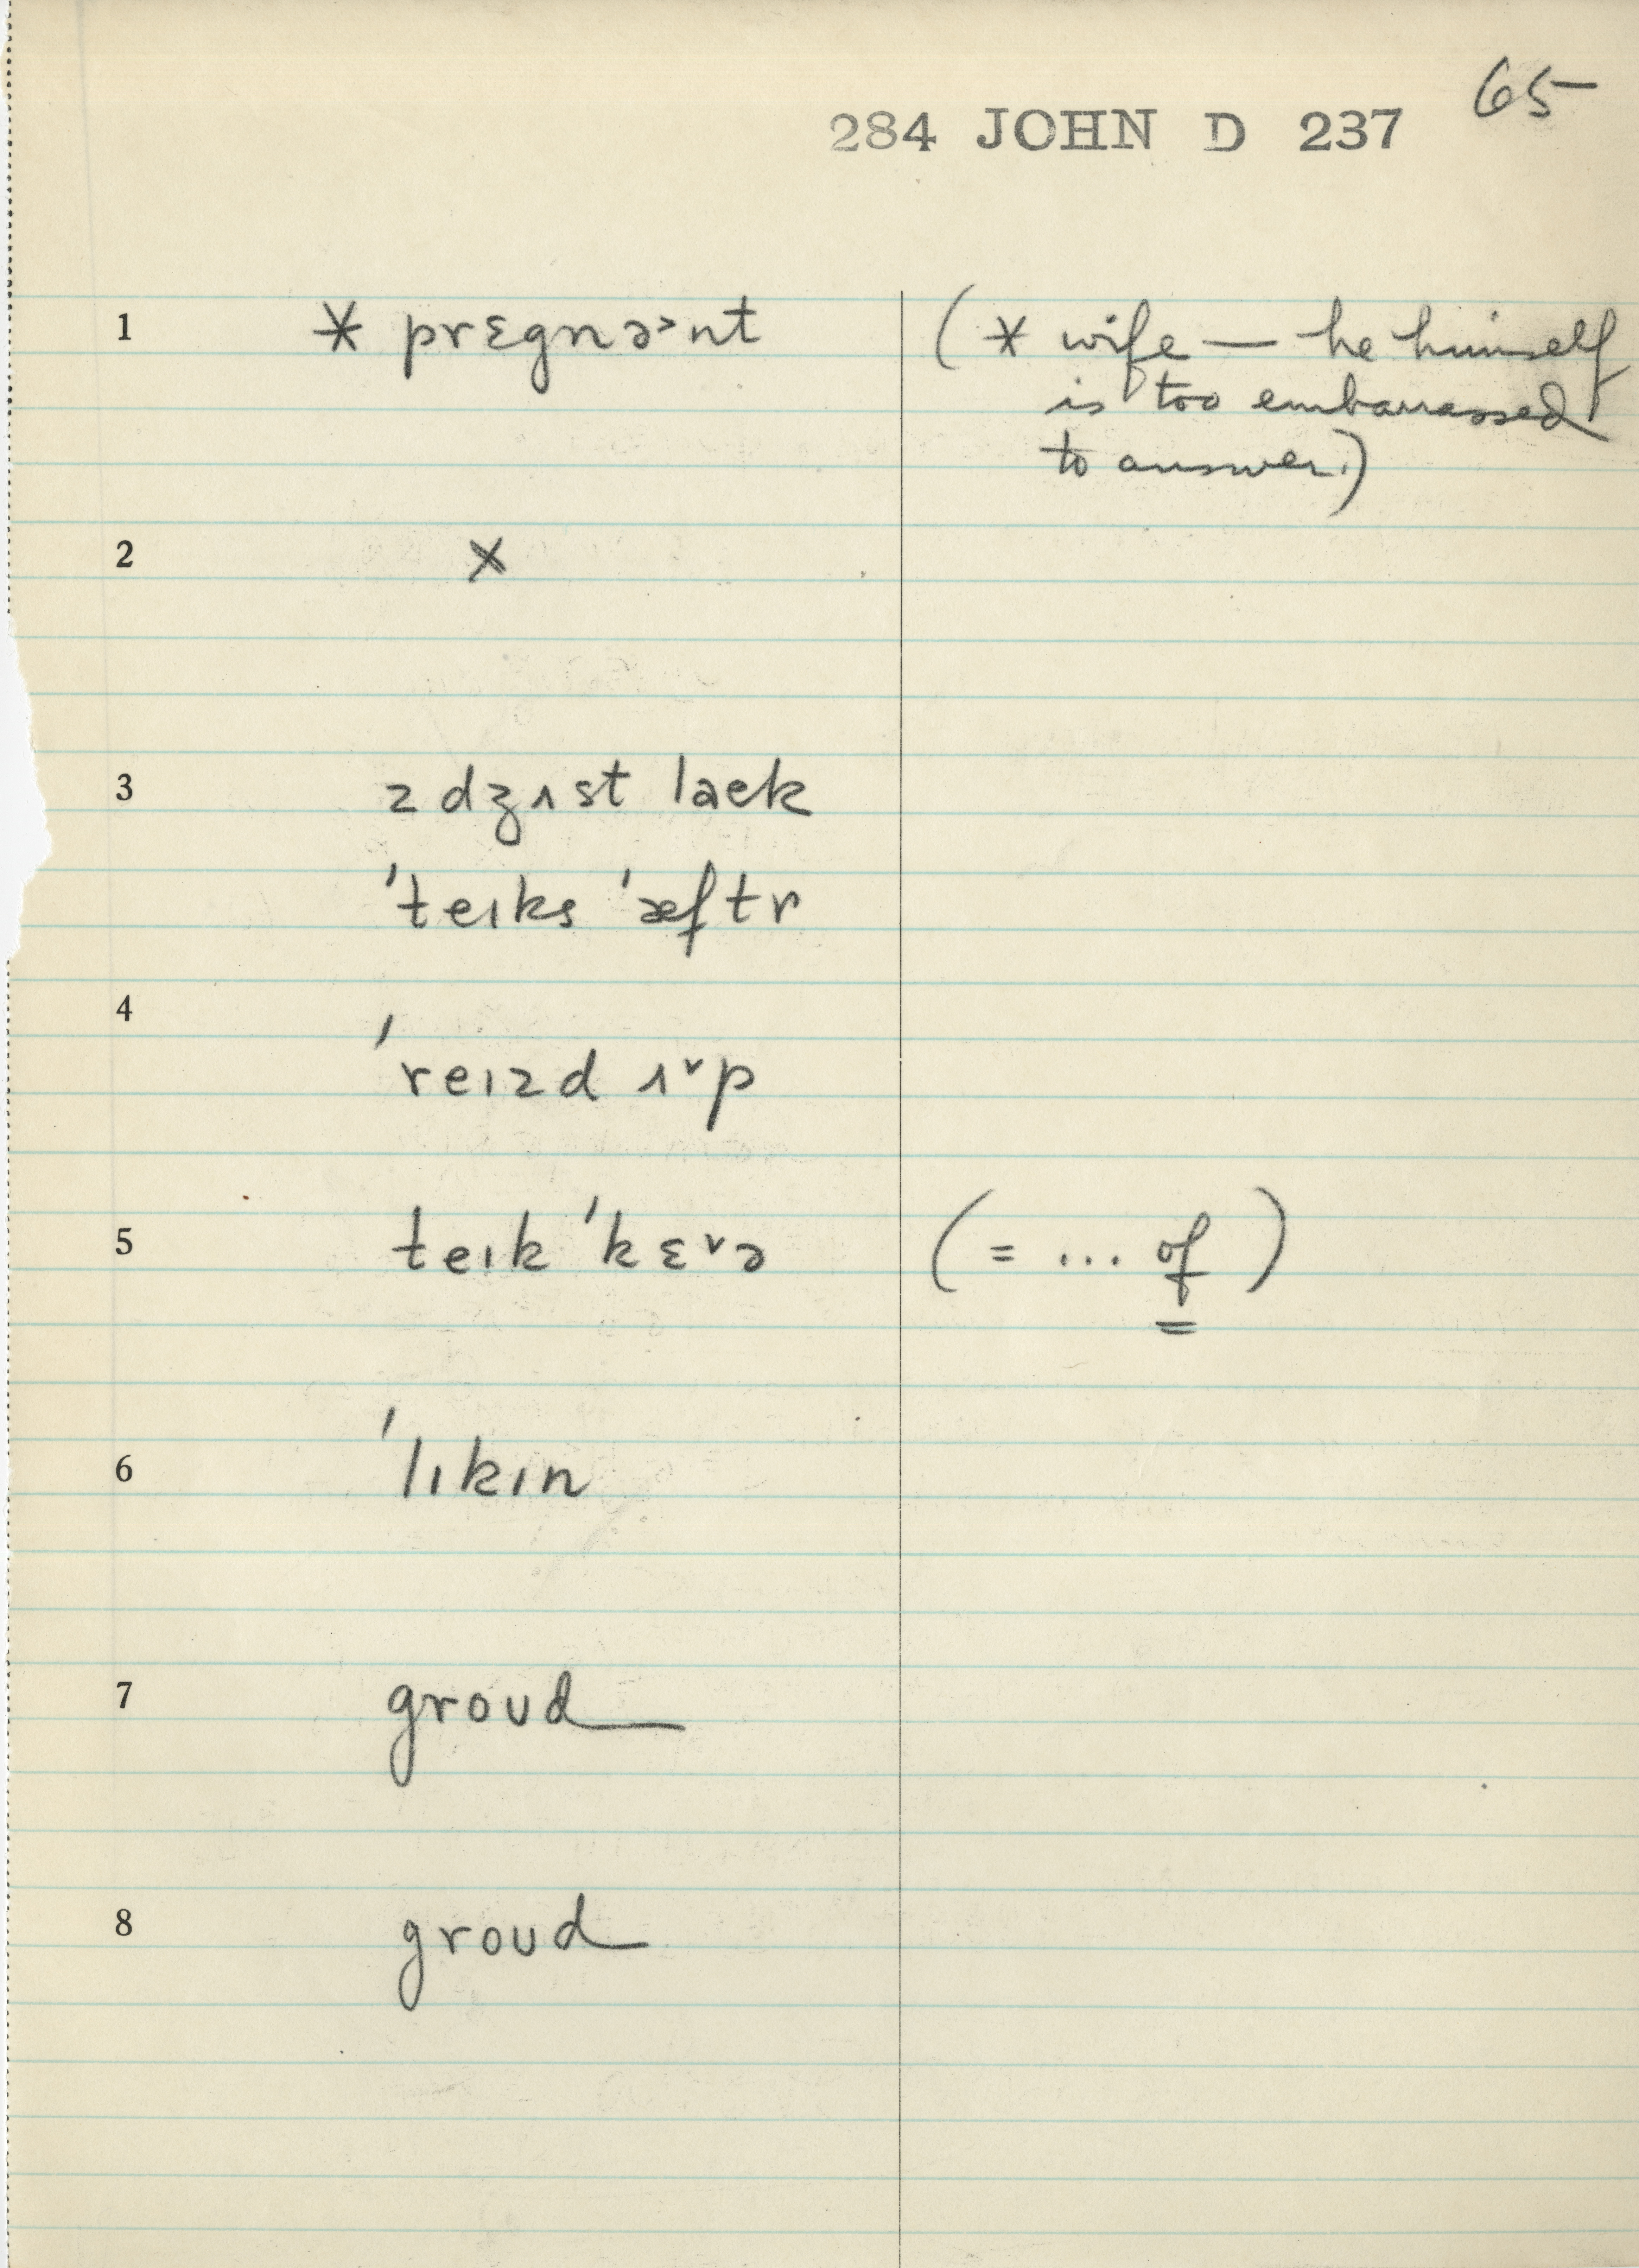 65
284 JOHN D 237
1 * prɛgnə˃nt (* wife — he himself
is too embarrassed
to answer.)
2 x
3 z dʒʌst laek
ˈteɪks ˈæftr
4 ˈreɪzd ʌ˅p
5 teɪk ˈkɛ˅ə (= ... of)
6 ˈlɪkɪn
7 groʊd
8 groʊd